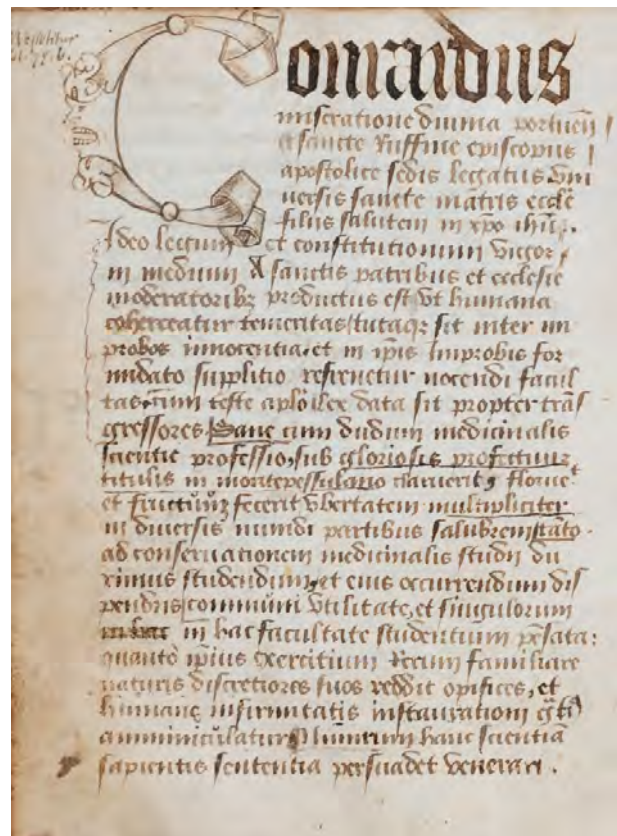 Conrardus
miseratione divina portueñ
et sancte Ruffine episcopus
apostolice sedis legatus Vni
uersis sancte matris eccle
filiis salutem in xpo ihu.
Ideo legum et constitutionum vigor
in medium A sanctis patribus et ecclesie
moderatoribꝫ productus est vt humana
choerceatur temeritas tutaqꝫ sit inter im
probos innocentia, et in ip̄is Improbis for
midato supplitio refrenetur nocendi facul
tas, cum teste ap̄lo lex data sit propter trãs
gressores Sane cum dudum medicinalis
scientie professio, sub gloriosis profectuum
titulis in montepessulano claruerit, floruet
et fructuũ fecerit vbertatem multipliciter
in diuersis mundi partibus salubrem
ad conseruationem medicinalis studii du
ximus studendum, et eius occurrendum dis
pendiis communi vtilitate, et singulorum
in hac facultate studentium pẽsata:
quanto ip̄ius exercitium Rerum familiare
naturis discretiores suos reddit opifices, et
humane infirmitatis instaurationi
amminiculatur hanc scientiã
sapientis sententia persuadet venerari.